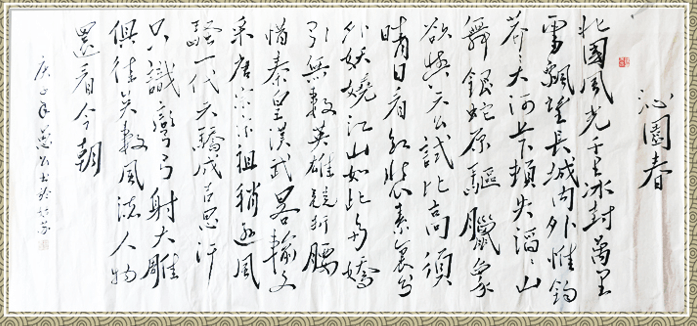 沁園春
北國風光千里冰封萬里
雪飄望長城内外惟餘
莽〻大河上下頓失滔〻山
舞銀蛇原驅臘象
欲與天公試比高須
晴日看紅裝素裹分
外妖嬈江山如此多嬌
引無數英雄競折腰
惜秦皇漢武畧輸文
采唐宗宋祖稍遜風
騷一代天驕成吉思汗
只識彎弓射大雕
俱往矣數風流人物
還看今朝